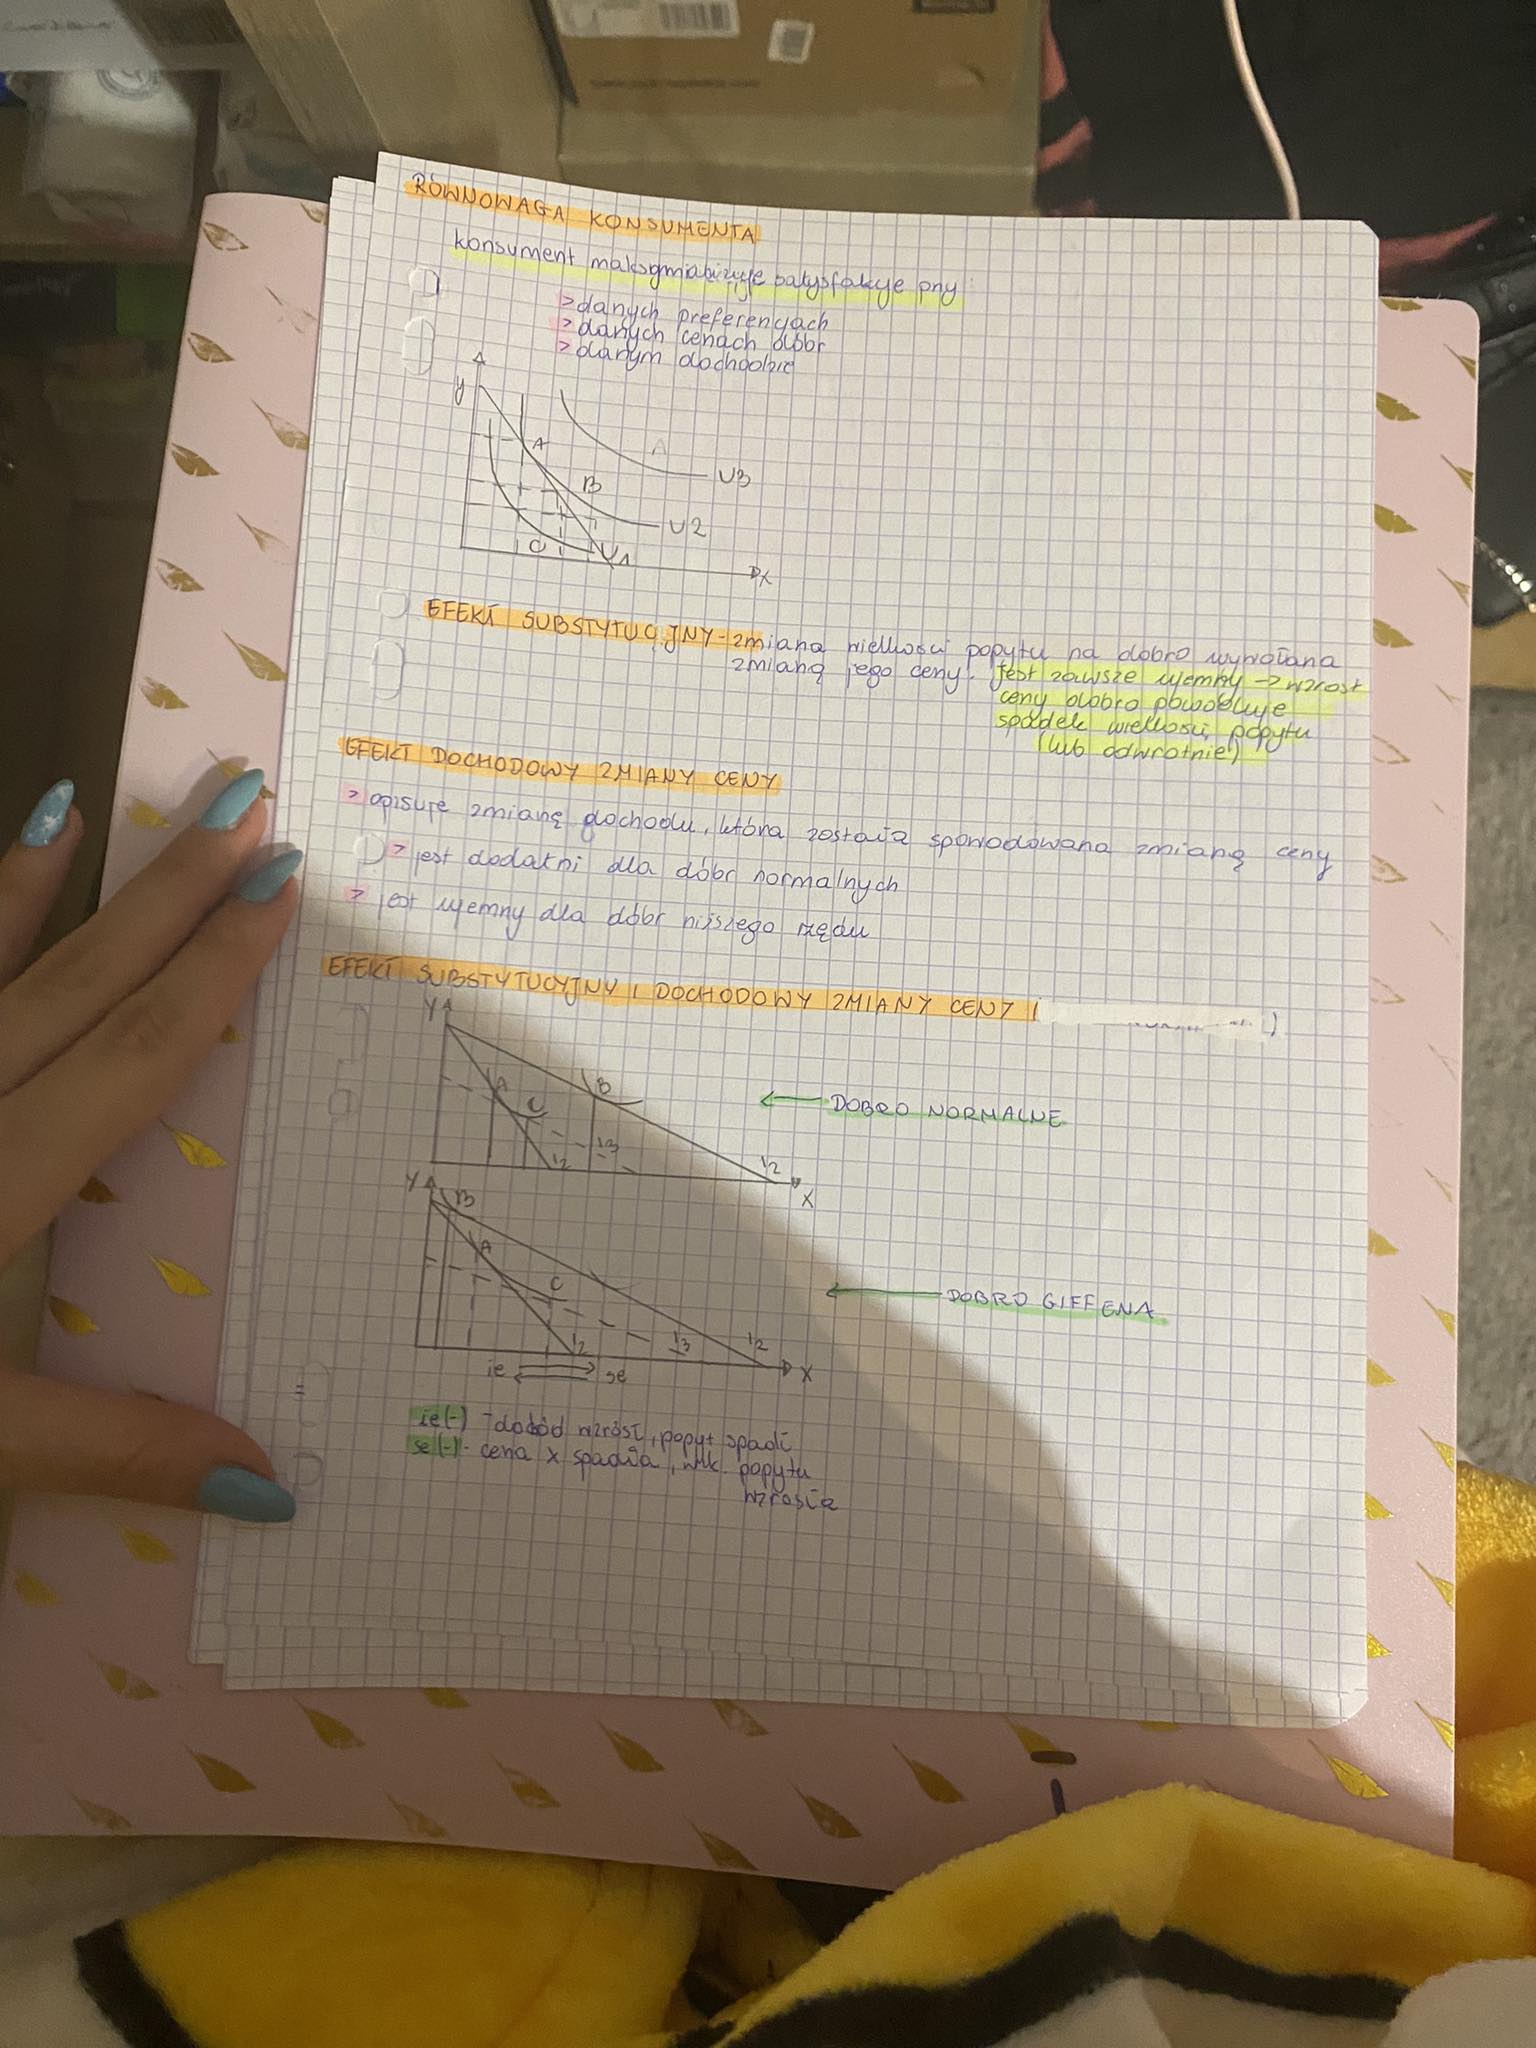 RÓWNOWAGA KONSUMENTA
konsument maksymializuje satysfakcje przy
> danych preferencjach
> danych cenach dóbr
> danym dochodzie
Y
A
A
U3
B
U2
C
U1
X
EFEKT SUBSTYTUCYJNY - zmiana wielkości popytu na dobro wywołana
zmianą jego ceny. Jest zawsze ujemny -> wzrost
ceny dobra powoduje
spadek wielkości popytu
(lub odwrotnie)
EFEKT DOCHODOWY ZMIANY CENY
> opisuje zmianę dochodu, która została spowodowana zmianą ceny
> jest dodatni dla dóbr normalnych
> jest ujemny dla dóbr niższego rzędu
EFEKT SUBSTYTUCYJNY I DOCHODOWY ZMIANY CENY ( )
Y
A
B
C
DOBRO NORMALNE
13
12
12
X
Y
B
A
C
DOBRO GIFFENA
12
13
12
X
ie se
ie(-) dochód wzrósł, popyt spadł
se(-) - cena x spadła, wlk. popytu
wzrosła